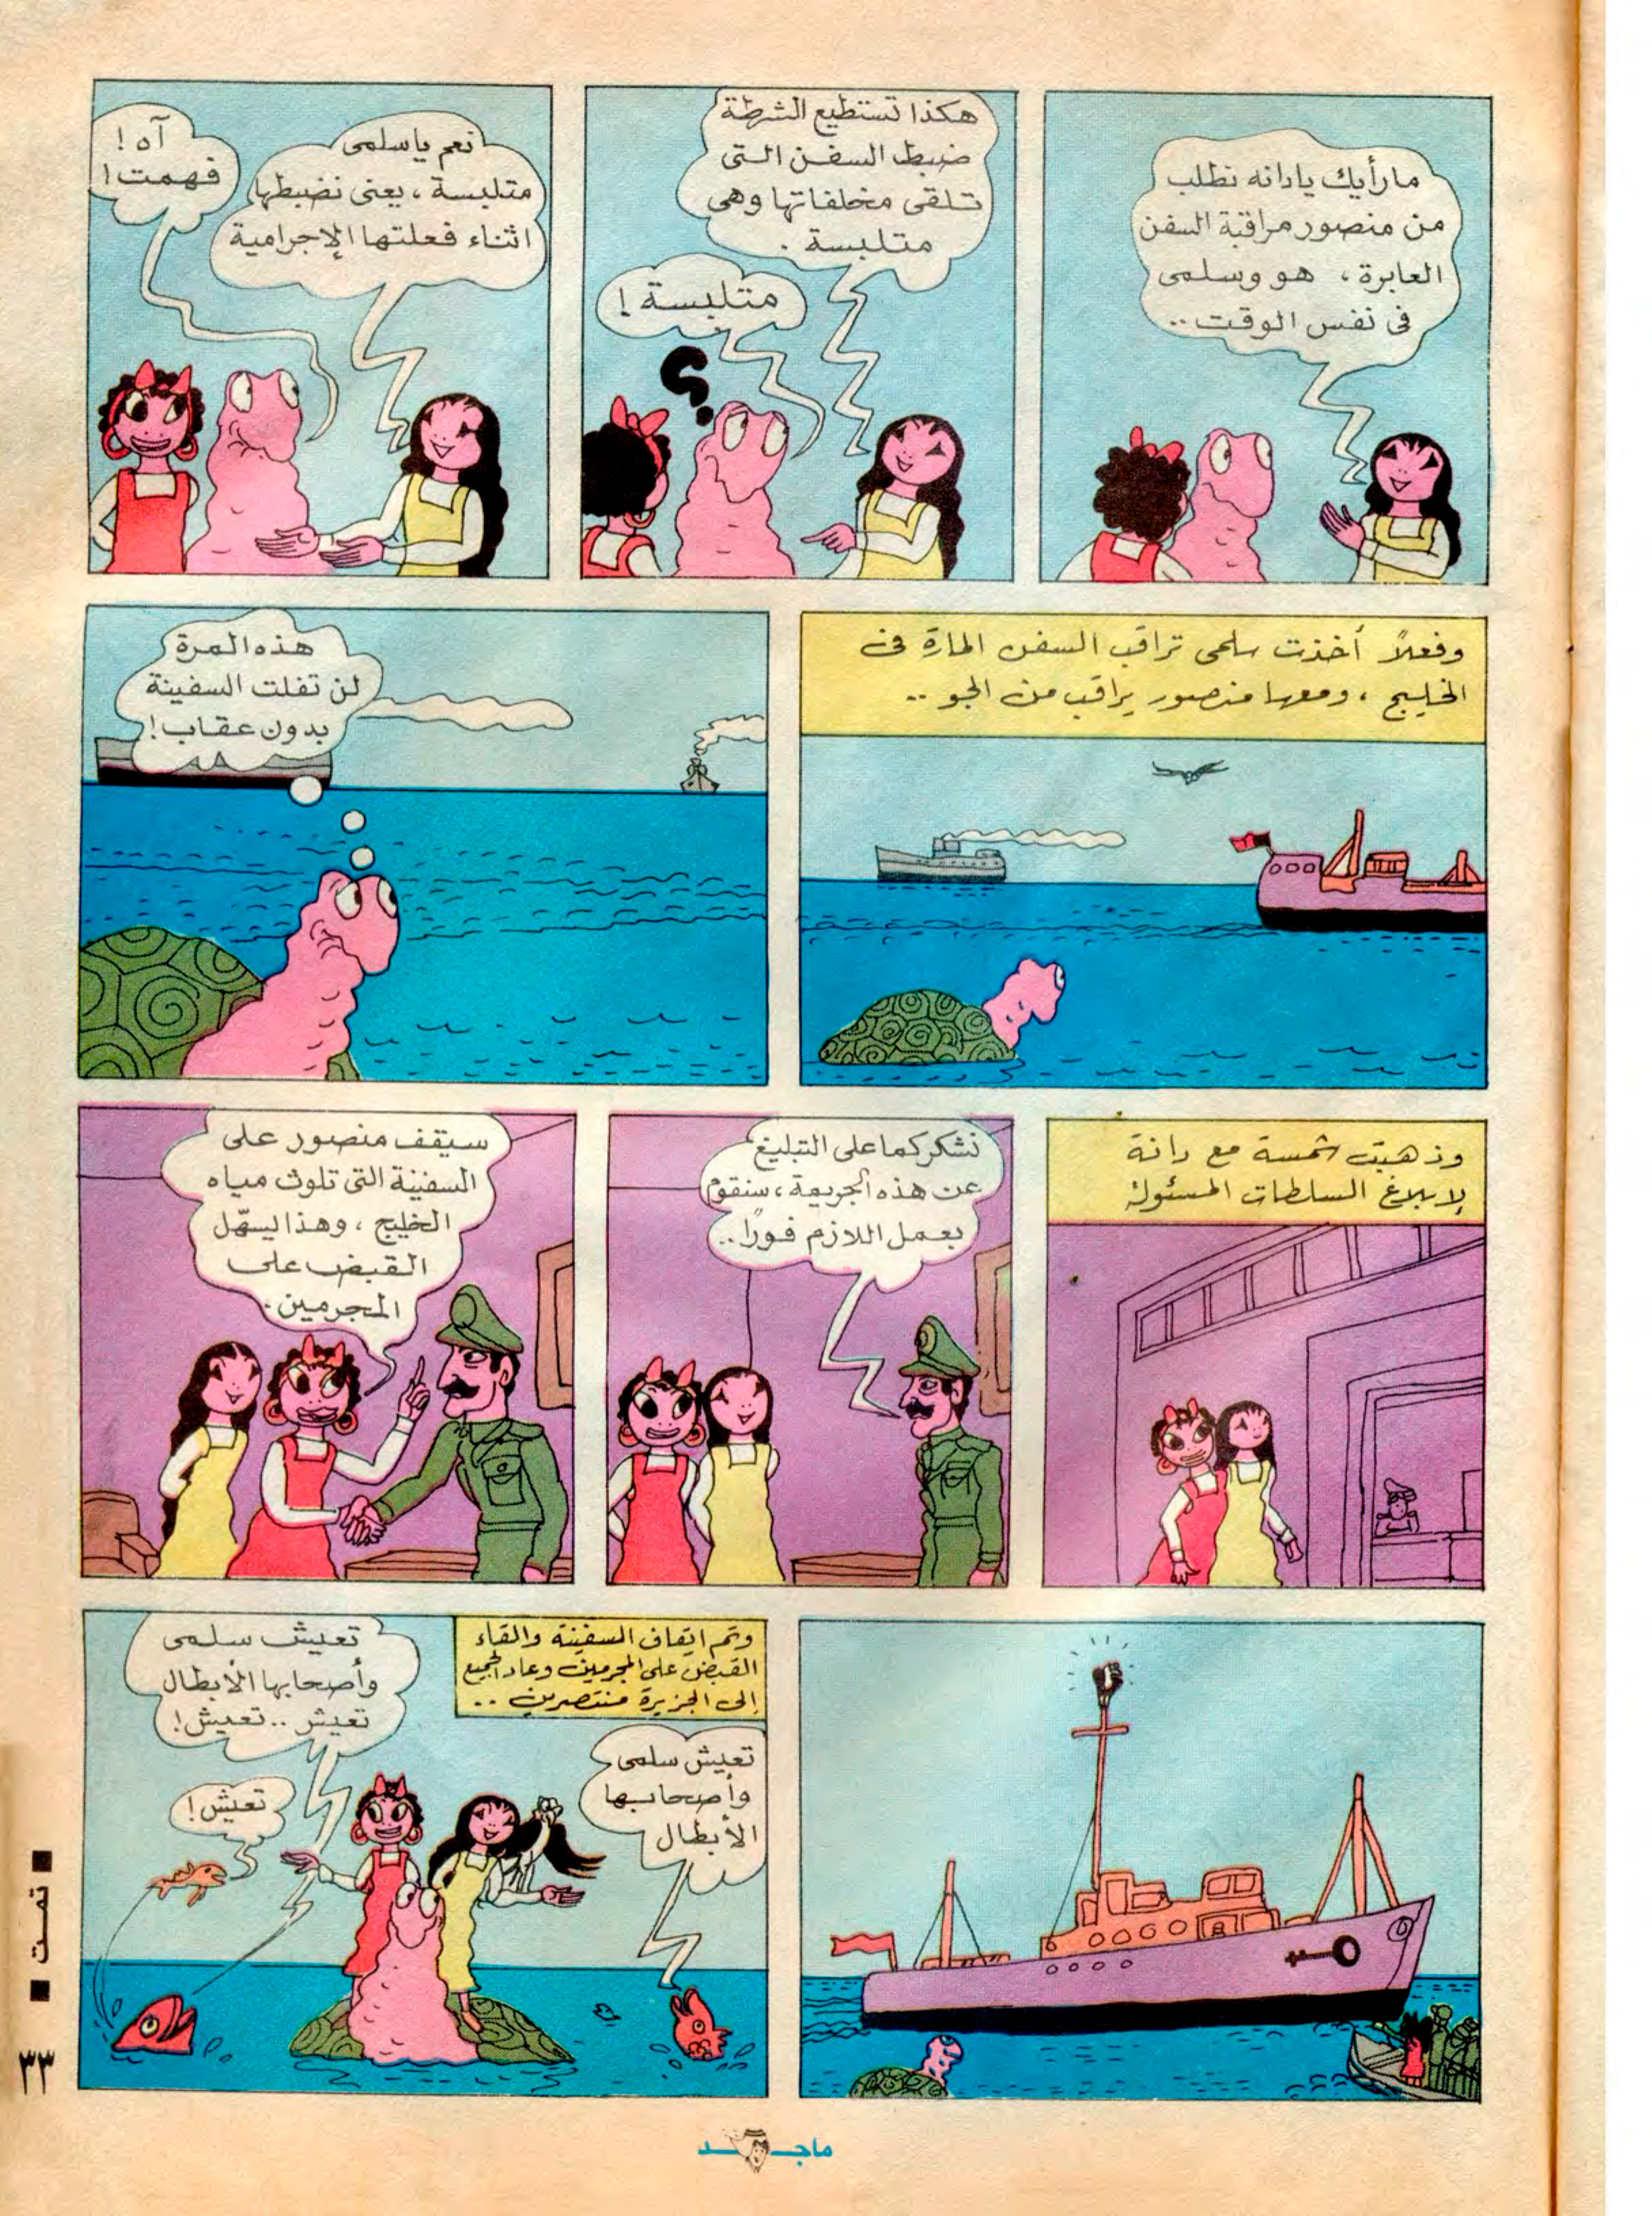 ما رأيك يا دانه نطلب
من منصور مراقبة السفن
العابرة، هو وسلمى
فى نفس الوقت..
هكذا تستطيع الشرطة
ضبط السفن التى
تلقى مخلفاتها وهى
متلبسة.
متلبسة!
؟
نعم يا سلمى
متلبسة، يعنى نضبطها
اثناء فعلتها الإجرامية
آه!
فهمت!
وفعلاً أخذت سلمى تراقب السفن المارة فى
الخليج، ومعها منصور يراقب من الجو..
هذه المرة
لن تفلت السفينة
بدون عقاب!
وذهبت شمسة مع دانة
لإبلاغ السلطات المسئولة
نشكركما على التبليغ
عن هذه الجريمة، سنقوم
بعمل اللازم فورًا..
سيقف منصور على
السفينة التى تلوث مياه
الخليج، وهذا يسهّل
القبض على
المجرمين.
وتم ايقاف السفينة والقاء
القبض على المجرمين وعاد الجميع
إلى الجزيرة منتصرين..
تعيش سلمى
وأصحابها
الأبطال
تعيش سلمى
وأصحابها الأبطال
تعيش.. تعيش!
تعيش!
■ تمت ■
٣٣
ماجد